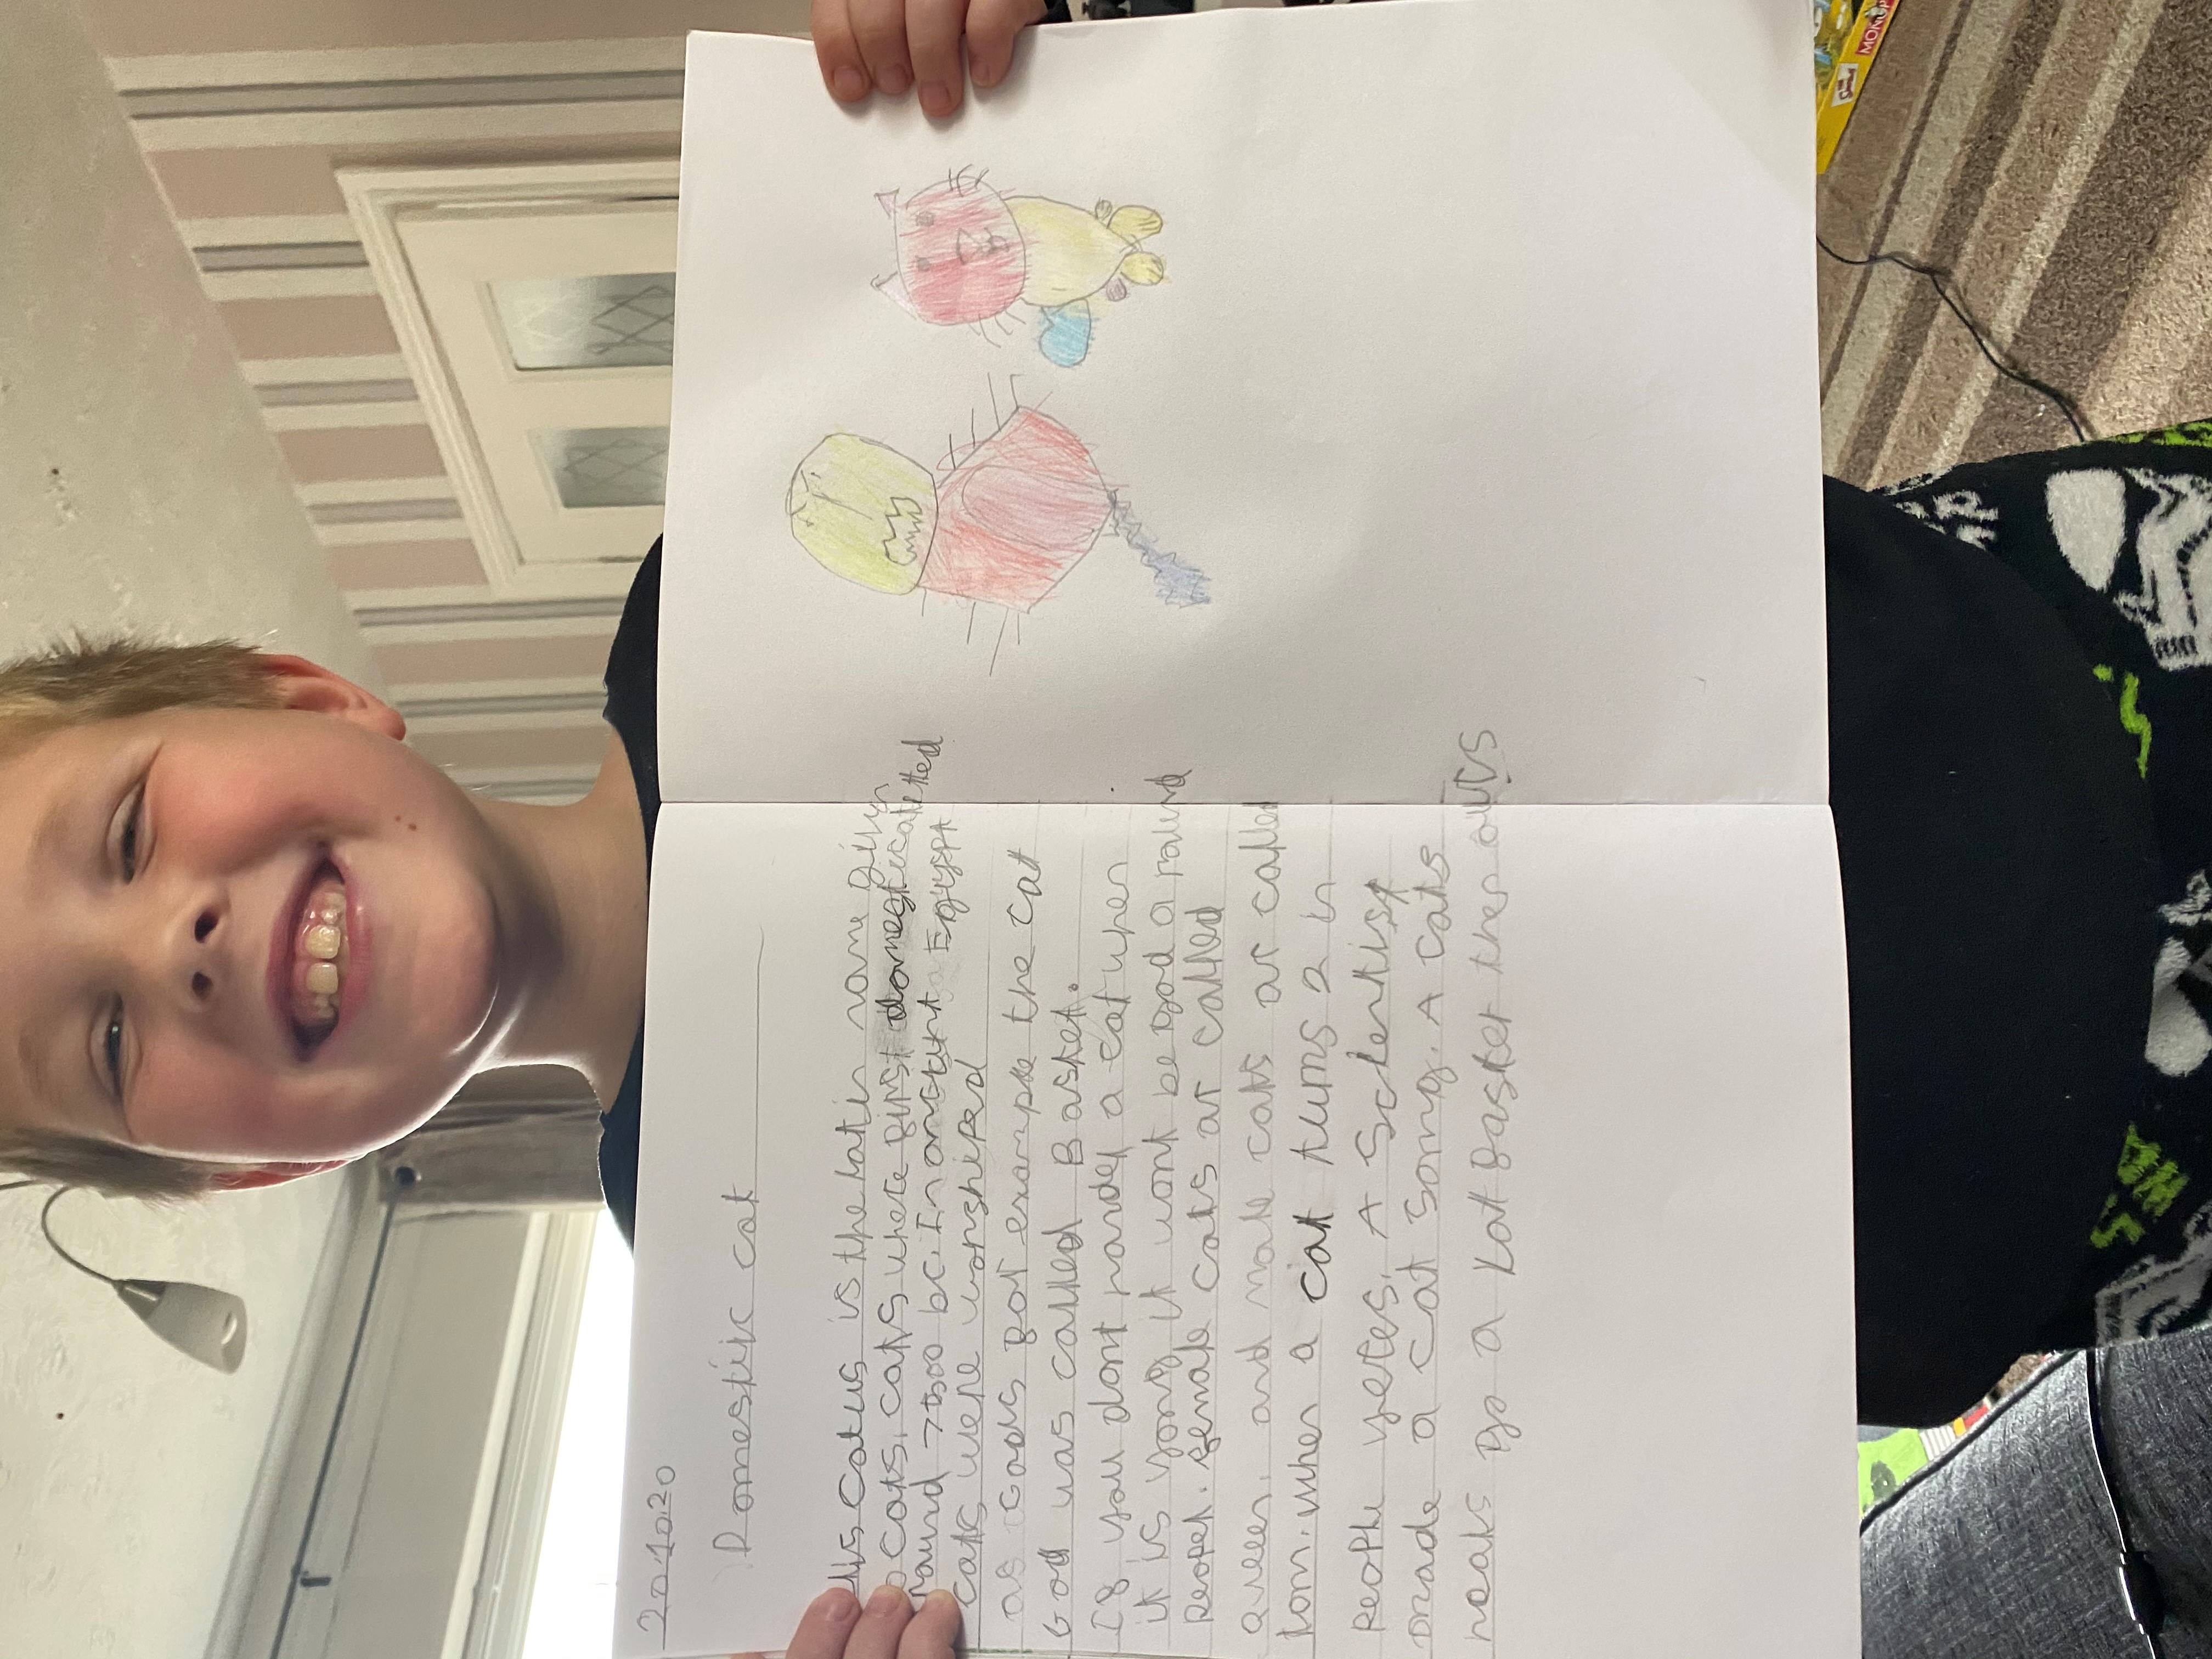 20.10.20
Domestic cat
lis catus is the latin name given
o cats. cats where first domesticatetted
round 7500 bc. In anctent Egyypt
cats were worshiped
as Goads for exampe the cat
God was called Basket.
If you dont handel a cat when
it is yong it wont be good a round
peopel. female cats ar called
queen. and male cats ar called
tom. when a cat turns 2 in
peopel yeres. A scientist
made a cat song. A cats
heats
a lot faster then ours
MONOP